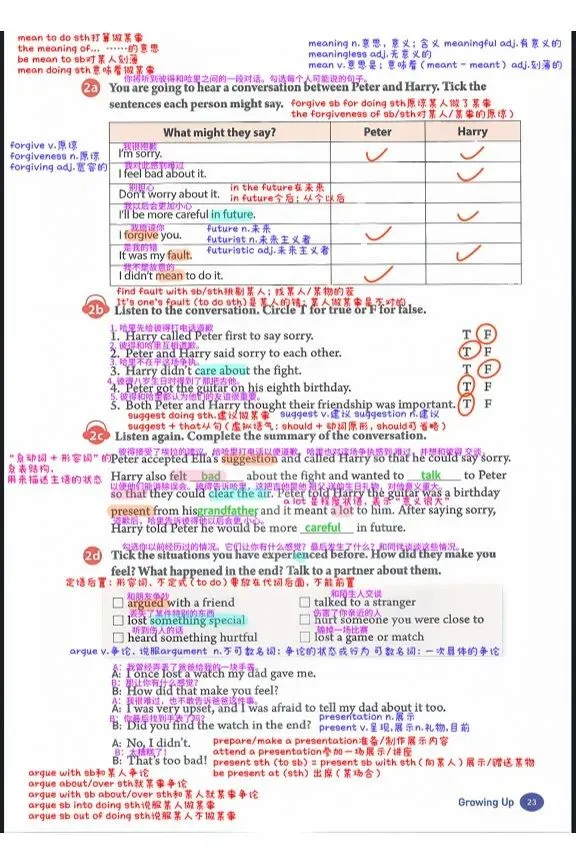 mean to do sth打算做某事
the meaning of... ……的意思
be mean to sb对某人刻薄
mean doing sth意味着做某事
meaning n.意思，意义；含义 meaningful adj.有意义的
meaningless adj.无意义的
mean v.意思是；意味着（meant - meant）adj.刻薄的
你将听到彼得和哈里之间的一段对话。勾选每个人可能说的句子。
2a You are going to hear a conversation between Peter and Harry. Tick the
sentences each person might say.
forgive sb for doing sth原谅某人做了某事
the forgiveness of sb/sth对某人/某事的原谅）
forgive v.原谅
forgiveness n.原谅
forgiving adj.宽容的
What might they say? Peter Harry
我很抱歉
I'm sorry.
我对此感到难过
I feel bad about it.
别担心
Don't worry about it.
in the future在未来
in future今后；从今以后
我以后会更加小心
I'll be more careful in future.
我原谅你
I forgive you.
future n.未来
futurist n.未来主义者
futuristic adj.未来主义者
是我的错
It was my fault.
我不是故意的
I didn't mean to do it.
find fault with sb/sth挑剔某人；找某人/某物的茬
It's one's fault (to do sth)是某人的错；某人做某事是不对的
2b Listen to the conversation. Circle T for true or F for false.
1. 哈里先给彼得打电话道歉
1. Harry called Peter first to say sorry. T F
2. 彼得和哈里互相道歉。
2. Peter and Harry said sorry to each other. T F
3. 哈里不在乎这场争执。
3. Harry didn't care about the fight. T F
4. 彼得八岁生日时得到了那把吉他。
4. Peter got the guitar on his eighth birthday. T F
5. 彼得和哈里都认为他们的友谊很重要。
5. Both Peter and Harry thought their friendship was important. T F
suggest doing sth.建议做某事 suggest v.建议 suggestion n.建议
suggest + that从句（虚拟语气：should + 动词原形，should可省略）
2c Listen again. Complete the summary of the conversation.
"系动词 + 形容词"的
系表结构，
用来描述主语的状态
Peter accepted Ella's suggestion and called Harry so that he could say sorry.
Harry also felt bad about the fight and wanted to talk to Peter
so that they could clear the air. Peter told Harry the guitar was a birthday
a lot 是程度状语，表示"意义很大"
present from his grandfather and it meant a lot to him. After saying sorry,
道歉后，哈里告诉彼得他以后会更小心。
Harry told Peter he would be more careful in future.
勾选你以前经历过的情况。它们让你有什么感觉？最后发生了什么？和同伴谈谈这些情况。
2d Tick the situations you have experienced before. How did they make you
feel? What happened in the end? Talk to a partner about them.
定语后置：形容词、不定式(to do）要放在代词后面，不能前置
和朋友争吵 和陌生人交谈
argued with a friend talked to a stranger
丢失了某件特别的东西 伤害了你亲近的人
lost something special hurt someone you were close to
听到伤人的话 输掉一场比赛
heard something hurtful lost a game or match
argue v.争论、说服argument n.不可数名词：争论的状态或行为 可数名词：一次具体的争论
A：我曾经弄丢了爸爸给我的一块手表。
A: I once lost a watch my dad gave me.
B：那让你有什么感觉？
B: How did that make you feel?
A：我很难过，也不敢告诉爸爸这件事。
A: I was very upset, and I was afraid to tell my dad about it too.
B：你最后找到手表了吗？
B: Did you find the watch in the end?
presentation n.展示
present v.呈现,展示n.礼物,目前
A: No, I didn't.
B：太糟糕了！
B: That's too bad!
prepare/make a presentation准备/制作展示内容
attend a presentation参加一场展示/讲座
present sth (to sb) = present sb with sth（向某人）展示/赠送某物
be present at (sth) 出席（某场合）
argue with sb和某人争论
argue about/over sth就某事争论
argue with sb about/over sth和某人就某事争论
argue sb into doing sth说服某人做某事
argue sb out of doing sth说服某人不做某事
Growing Up 23